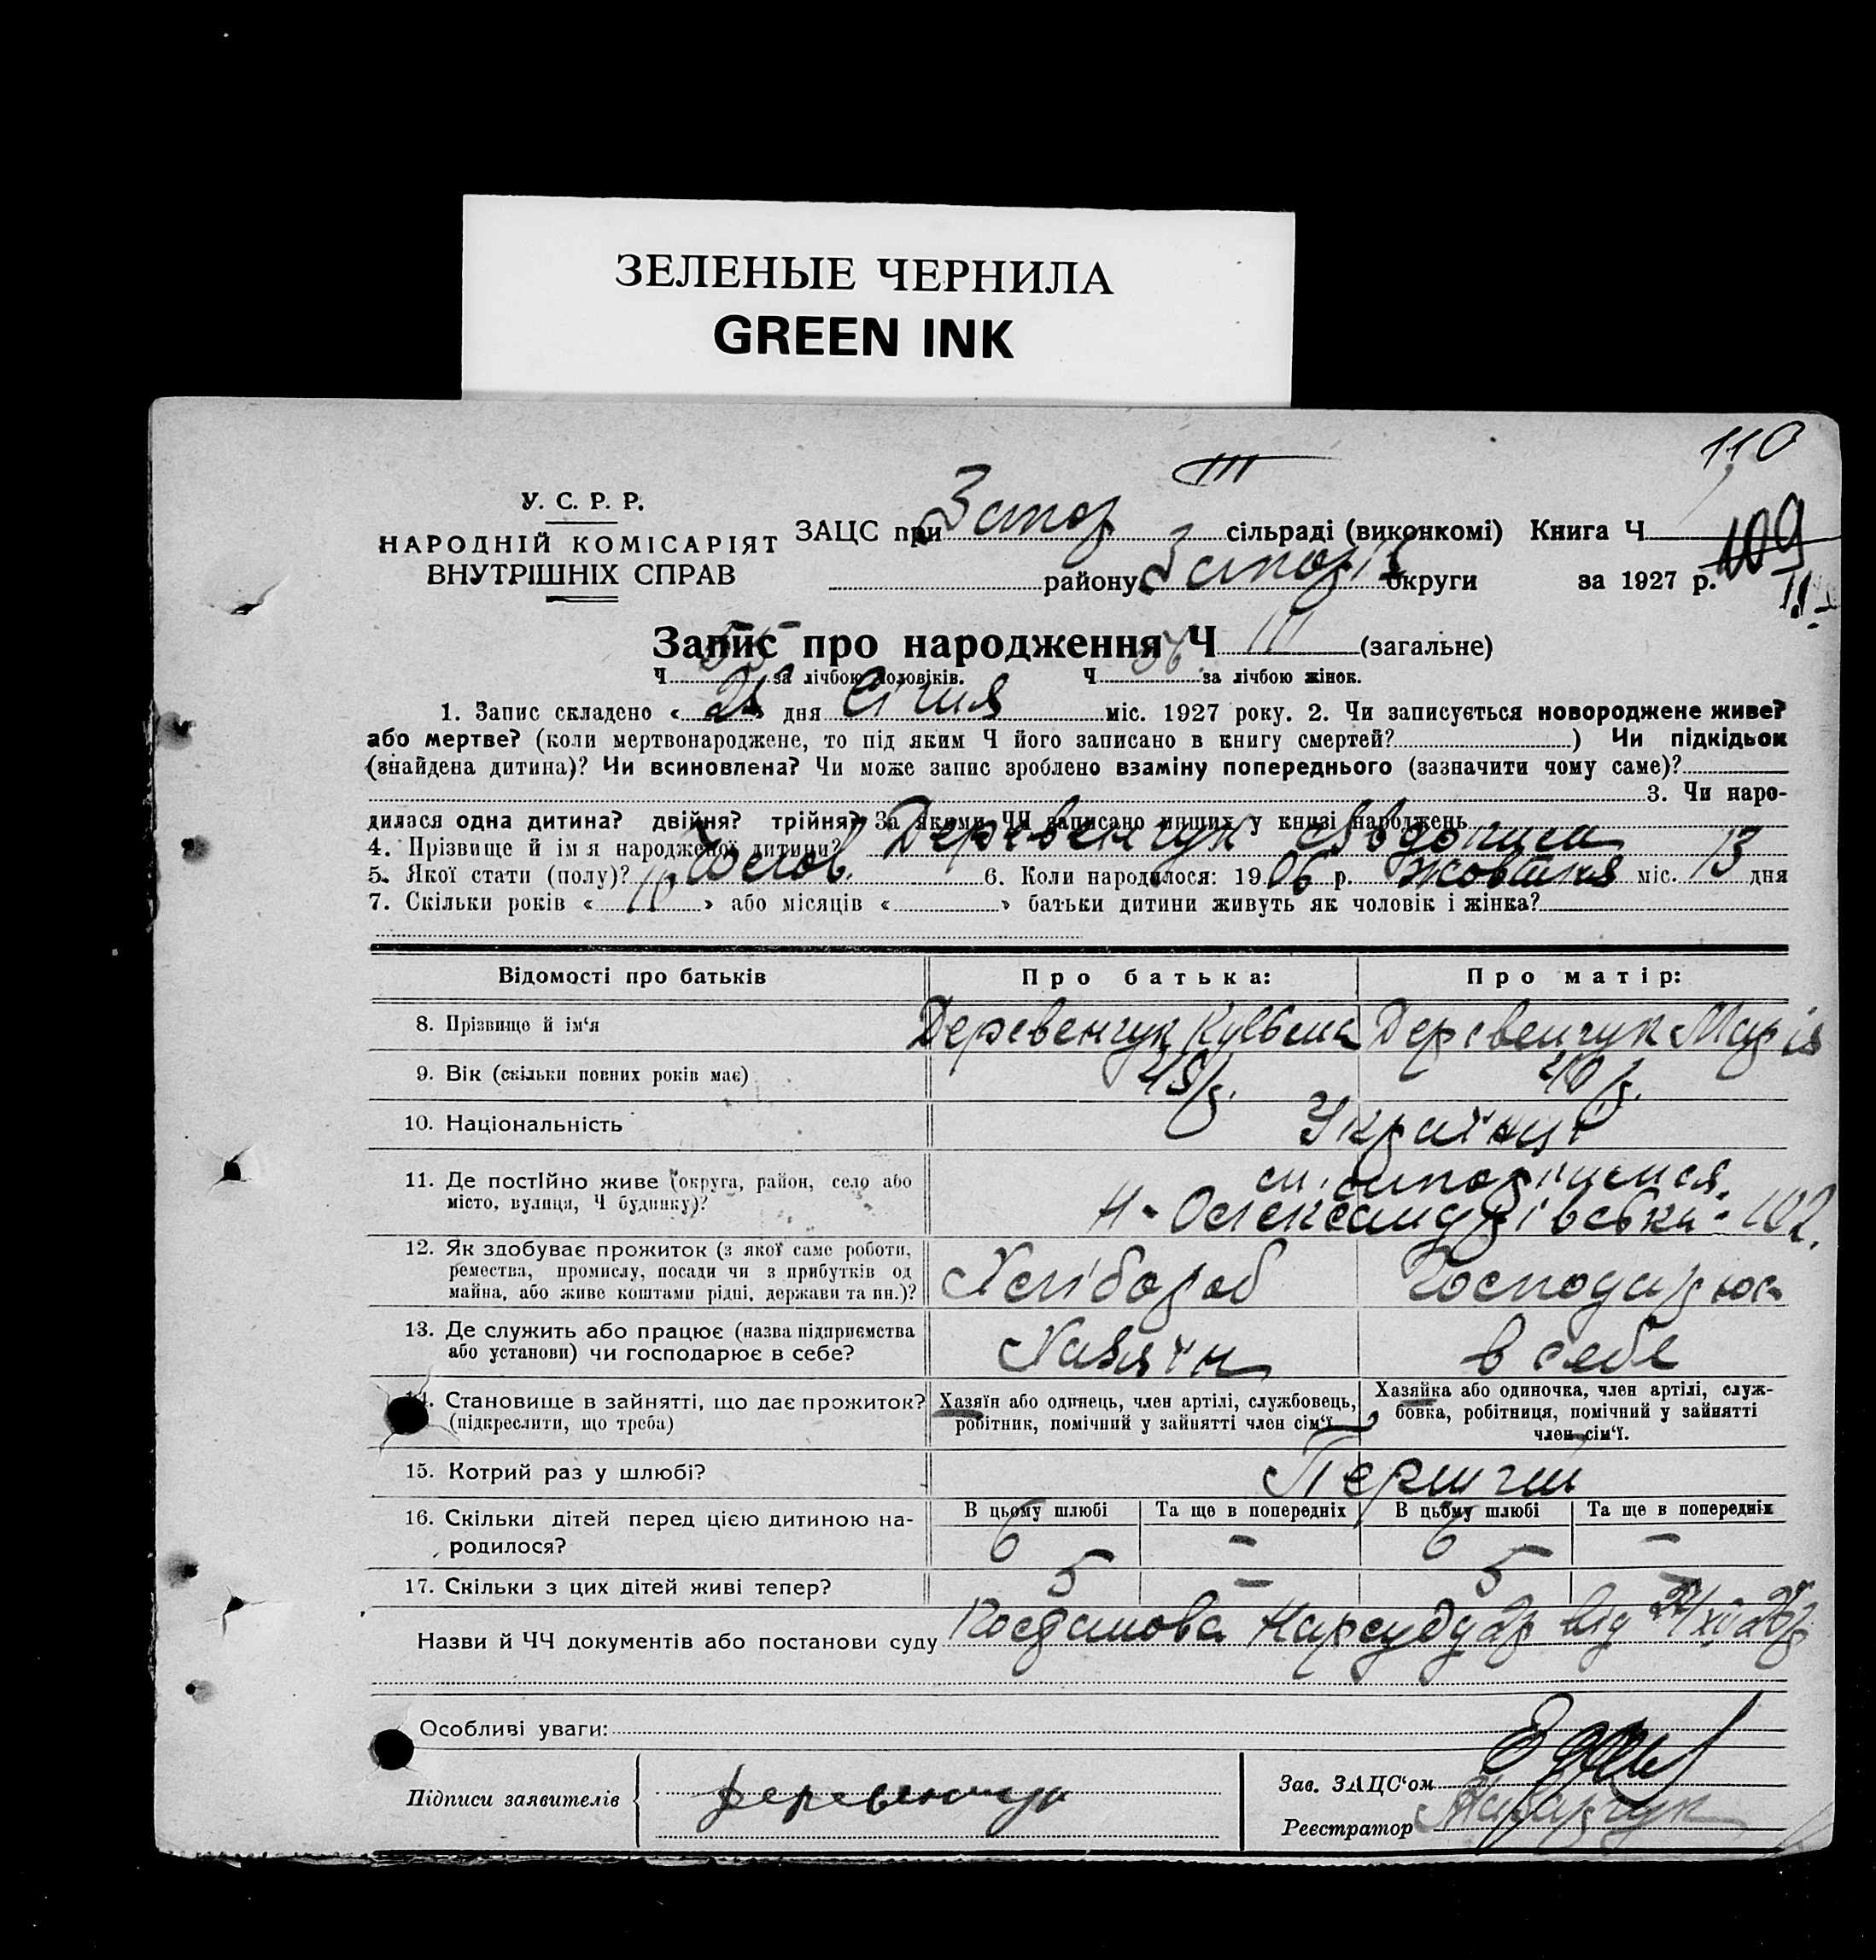 ЗЕЛЕНЫЕ ЧЕРНИЛА
GREEN INK
110
III
У. С. Р. Р.
НАРОДНІЙ КОМІСАРІЯТ
ВНУТРІШНІХ СПРАВ
ЗАЦС при Запор сільраді (виконкомі) Книга Ч
109
району Запоріз округи за 1927 р.
Запис про народження Ч 111 (загальне)
Ч 55 за лічбою чоловіків. Ч 56 за лічбою жінок.
1. Запис складено « » дня Січня міс. 1927 року. 2. Чи записується новороджене живе?
або мертве? (коли мертвонароджене, то під яким Ч його записано в книгу смертей? ) Чи підкідьок
(знайдена дитина)? Чи всиновлена? Чи може запис зроблено взаміну попереднього (зазначити чому саме)?
3. Чи наро-
дилася одна дитина? двійня? трійня? За якими ЧЧ записано инших у книзі народжень
4. Прізвище й ім я народженої дитини? Деревенчук
5. Якої стати (полу)? Чолов. 6. Коли народилося: 1906 р. жовтня міс. 13 дня
7. Скільки років « » або місяців « » батьки дитини живуть як чоловік і жінка?
Відомості про батьків Про батька: Про матір:
8. Прізвище й ім‘я Деревенчук Кузьма Деревенчук Марія
9. Вік (скільки повних років має) 48 р. 40 р.
10. Національність Українці
11. Де постійно живе (округа, район, село або
місто, вулиця, Ч будинку)? Н-Олександрівська 102.
12. Як здобуває прожиток (з якої саме роботи,
ремества, промислу, посади чи з прибутків од
майна, або живе коштами рідні, держави та ин.)? Хлібороб Господарює
13. Де служить або працює (назва підприємства
або установи) чи господарює в себе? Хазяїн в себе
14. Становище в зайнятті, що дає прожиток?
(підкреслити, що треба)
Хазяїн або одинець, член артілі, службовець,
робітник, помічний у зайнятті член сім‘ї
Хазяйка або одиночка, член артілі, служ-
бовка, робітниця, помічний у зайнятті
член сім‘ї.
15. Котрий раз у шлюбі? Перший
16. Скільки дітей перед цією дитиною на-
родилося?
В цьому шлюбі Та ще в попередніх В цьому шлюбі Та ще в попередніх
6 - 6 -
17. Скільки з цих дітей живі тепер? 5 - 5 -
Назви й ЧЧ документів або постанови суду Постанова Нарсуду від
Особливі уваги:
Підписи заявителів Деревенчук
Зав. ЗАЦС‘ом
Реєстратор